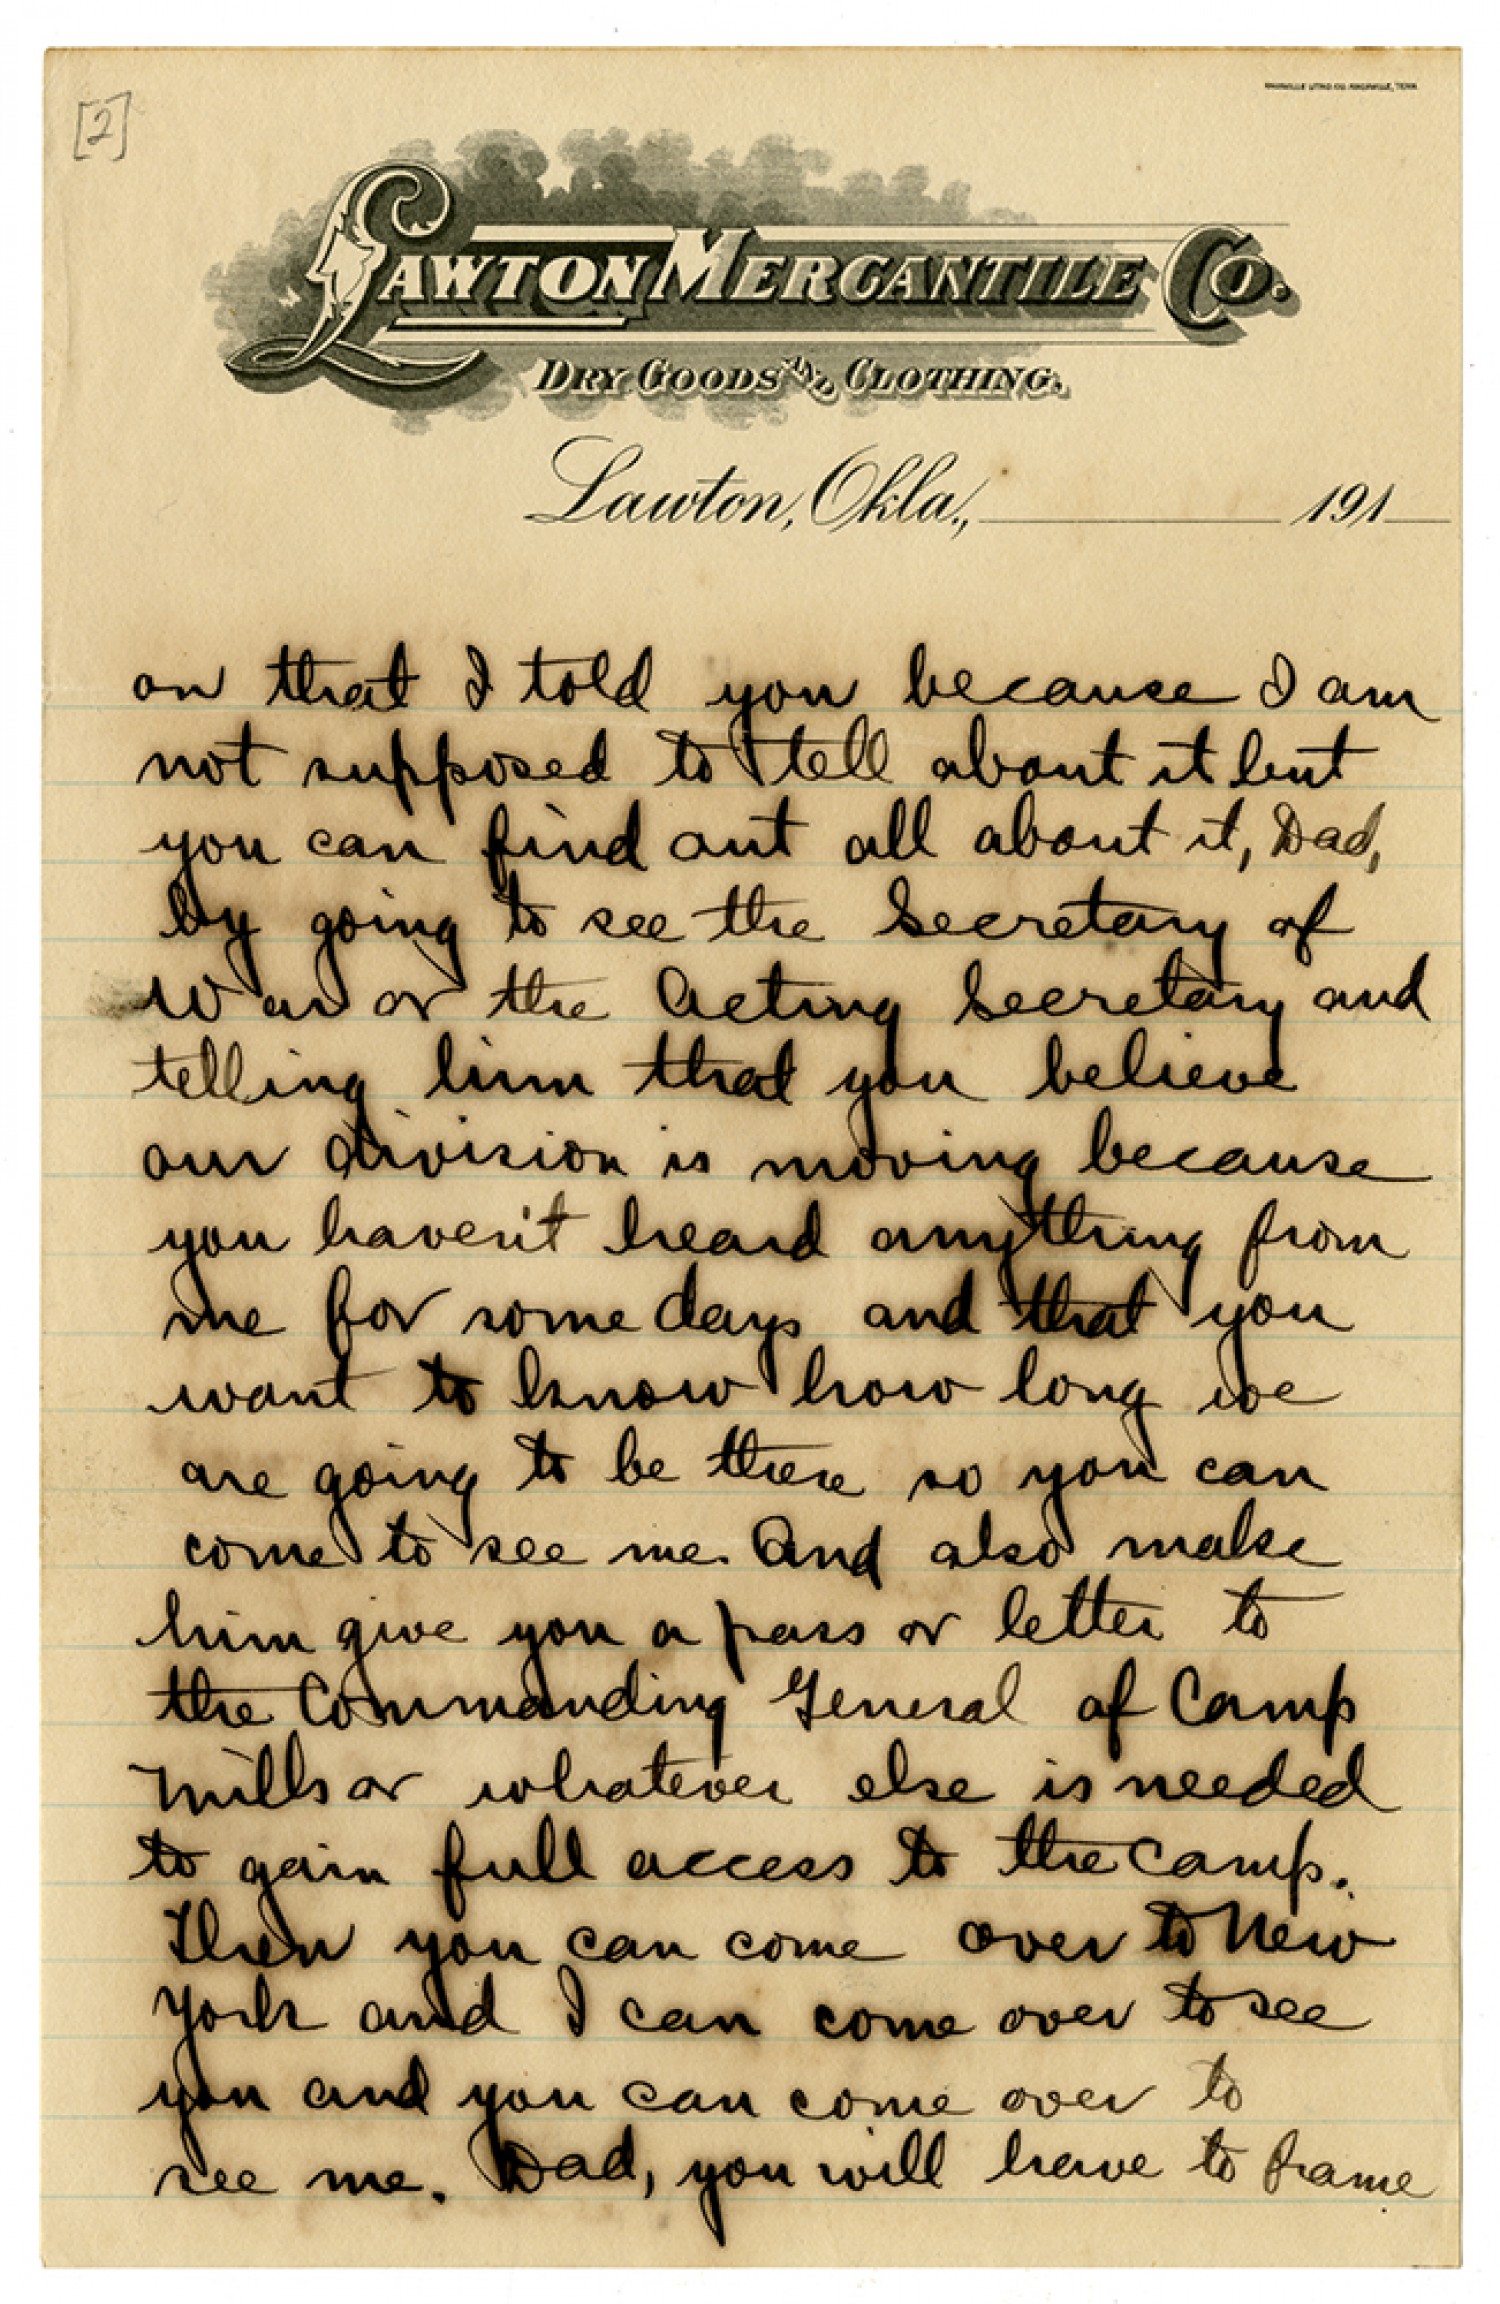 [2]
KNOXVILLE LITHO CO. KNOXVILLE, TENN.
LAWTON MERCANTILE CO.
DRY GOODS AND CLOTHING.
Lawton, Okla., 191
on that I told you because I am
not supposed to tell about it but
you can find out all about it, Dad,
by going to see the Secretary of
War or the Acting Secretary and
telling him that you believe
our division is moving because
you haven't heard anything from
me for some days and that you
want to know how long we
are going to be there so you can
come to see me. And also make
him give you a pass or letter to
the Commanding General of Camp
Mills or whatever else is needed
to gain full access to the camp.
Then you can come over to New
York and I can come over to see
you and you can come over to
see me. Dad, you will have to frame